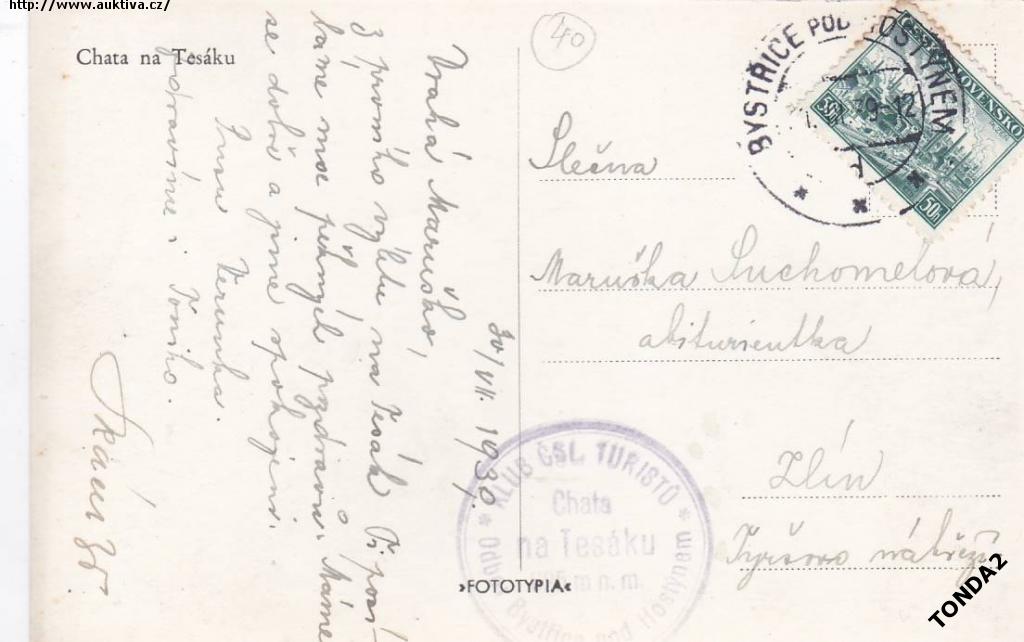 http://www.auktiva.cz/
Chata na Tesáku
40
30/VII. 1939.
Drahá Maruško,
z prvního výletu na Tesák Ti posí-
láme moc pěkných pozdravů. Máme
se dobře a jsme spokojeni.
Verunka.
Pozdravujme i Toniho.
BYSTŘICE POD HOSTÝNEM
39-12
ČESKOSLOVENSKO
50h
50h
Slečna
Maruška Suchomelová,
abiturientka
Zlín
Tyršovo nábřeží
KLUB ČSL. TURISTŮ
Chata
na Tesáku
m n. m.
odbor Bystřice pod Hostýnem
›FOTOTYPIA‹
TONDA2